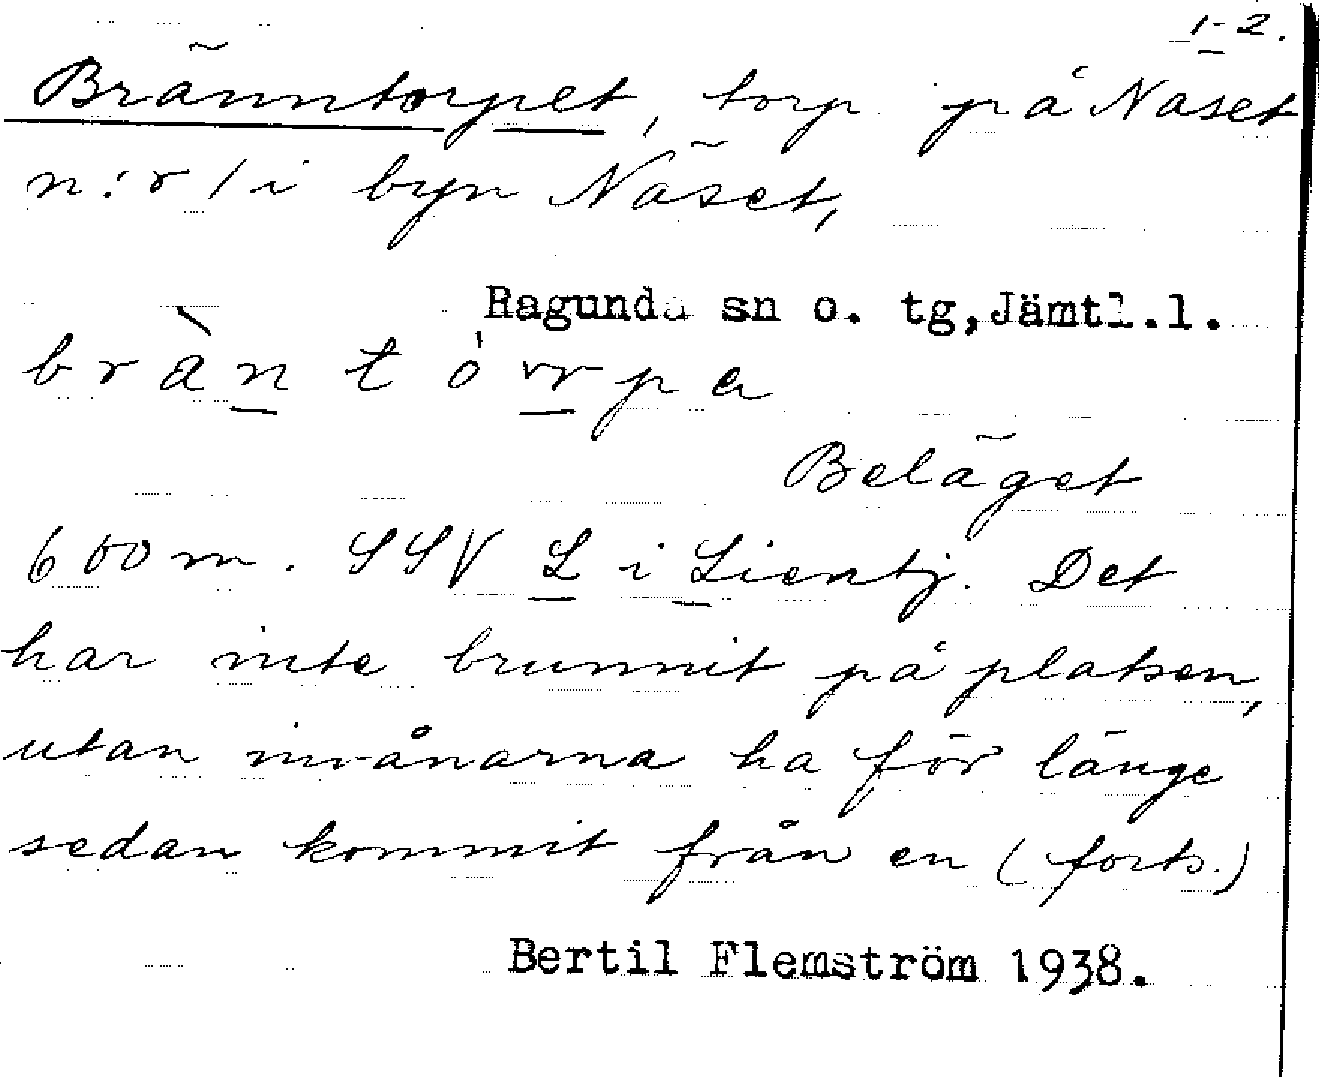 1-2.
Bränntorpet, torp på Näset
n:r 1 i byn Näset,
Ragunda sn o. tg, Jämtl.l.
brànt órrpa
Beläget
600 m. SSV L i Lientj. Det
har inte brunnit på platsen,
utan invånarna ha för länge
sedan kommit från en (forts.)
Bertil Flemström 1938.